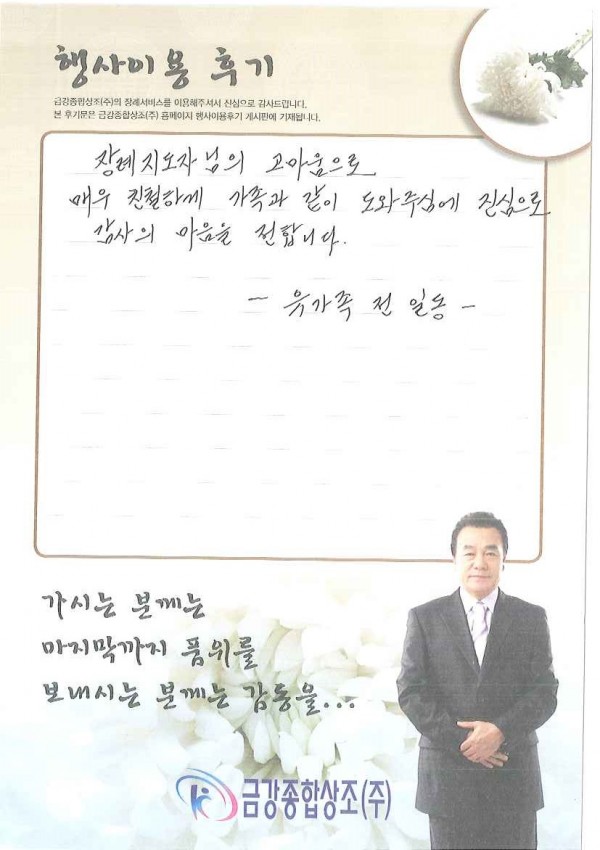 행사이용 후기
금강종합상조(주)의 장례서비스를 이용해주셔서 진심으로 감사드립니다.
본 후기문은 금강종합상조(주) 홈페이지 행사이용후기 게시판에 기재됩니다.
장례지도자님의 고마움으로
매우 친절하게 가족과 같이 도와주심에 진심으로
감사의 마음을 전합니다.
- 유가족 전 일동 -
가시는 분께는
마지막까지 품위를
보내시는 분께는 감동을...
금강종합상조(주)